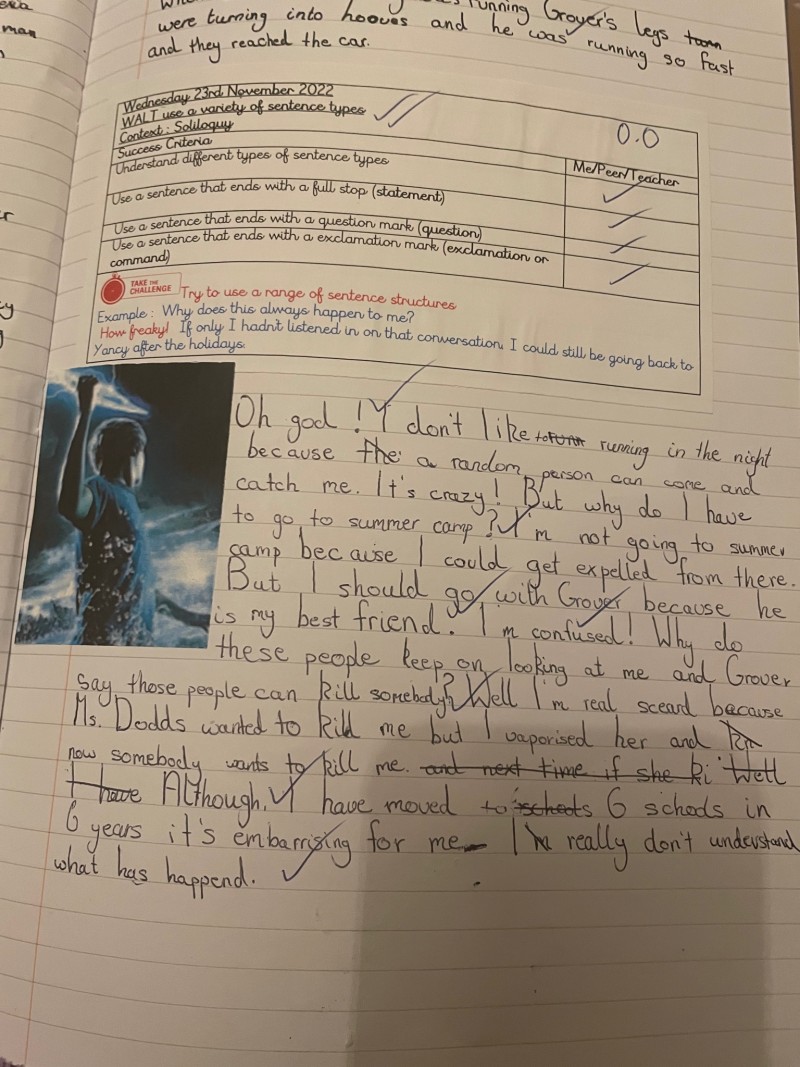 running Grover's legs
were turning into hooves and he was running so fast
and they reached the car.
Wednesday 23rd November 2022
WALT use a variety of sentence types
Context: Soliloquy
0.0
Success Criteria
Me/Peer/Teacher
Understand different types of sentence types
Use a sentence that ends with a full stop (statement)
Use a sentence that ends with a question mark (question)
Use a sentence that ends with a exclamation mark (exclamation or
command)
TAKE THE
CHALLENGE
Try to use a range of sentence structures
Example: Why does this always happen to me?
How freaky! If only I hadn't listened in on that conversation, I could still be going back to
Yancy after the holidays.
Oh god! I don't like running in the night
because the a random person can come and
catch me. It's crazy! But why do I have
to go to summer camp? I'm not going to summer
camp because I could get expelled from there.
But I should go with Grover because he
is my best friend. I'm confused! Why do
these people keep on looking at me and Grover
say those people can kill somebody? Well I'm real sceard because
Ms. Dodds wanted to kill me but I vaporised her and
now somebody wants to kill me. and next time if she ki Well
I have Although, I have moved to schools 6 schools in
6 years it's embarrising for me I'm really don't understand
what has happend.